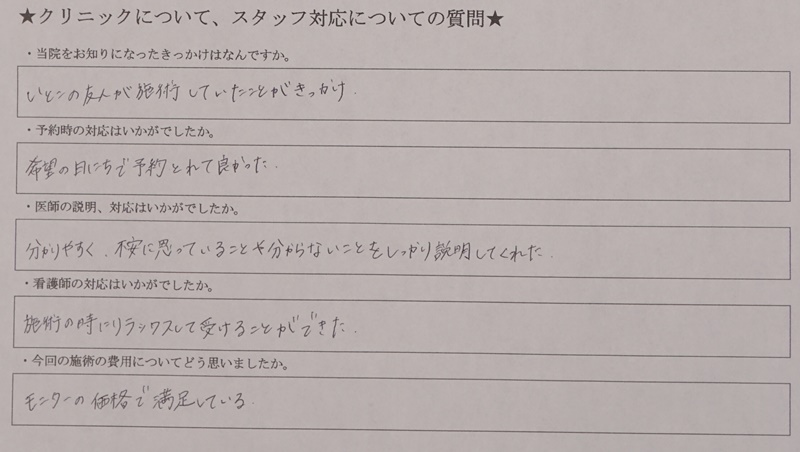 ★クリニックについて、スタッフ対応についての質問★
・当院をお知りになったきっかけはなんですか。
いとこの友人が施術していたことがきっかけ.
・予約時の対応はいかがでしたか。
希望の日にちで予約とれて良かった.
・医師の説明、対応はいかがでしたか。
分かりやすく、不安に思っていることや分からないことをしっかり説明してくれた.
・看護師の対応はいかがでしたか。
施術の時にリラックスして受けることができた.
・今回の施術の費用についてどう思いましたか。
モニターの価格で満足している.